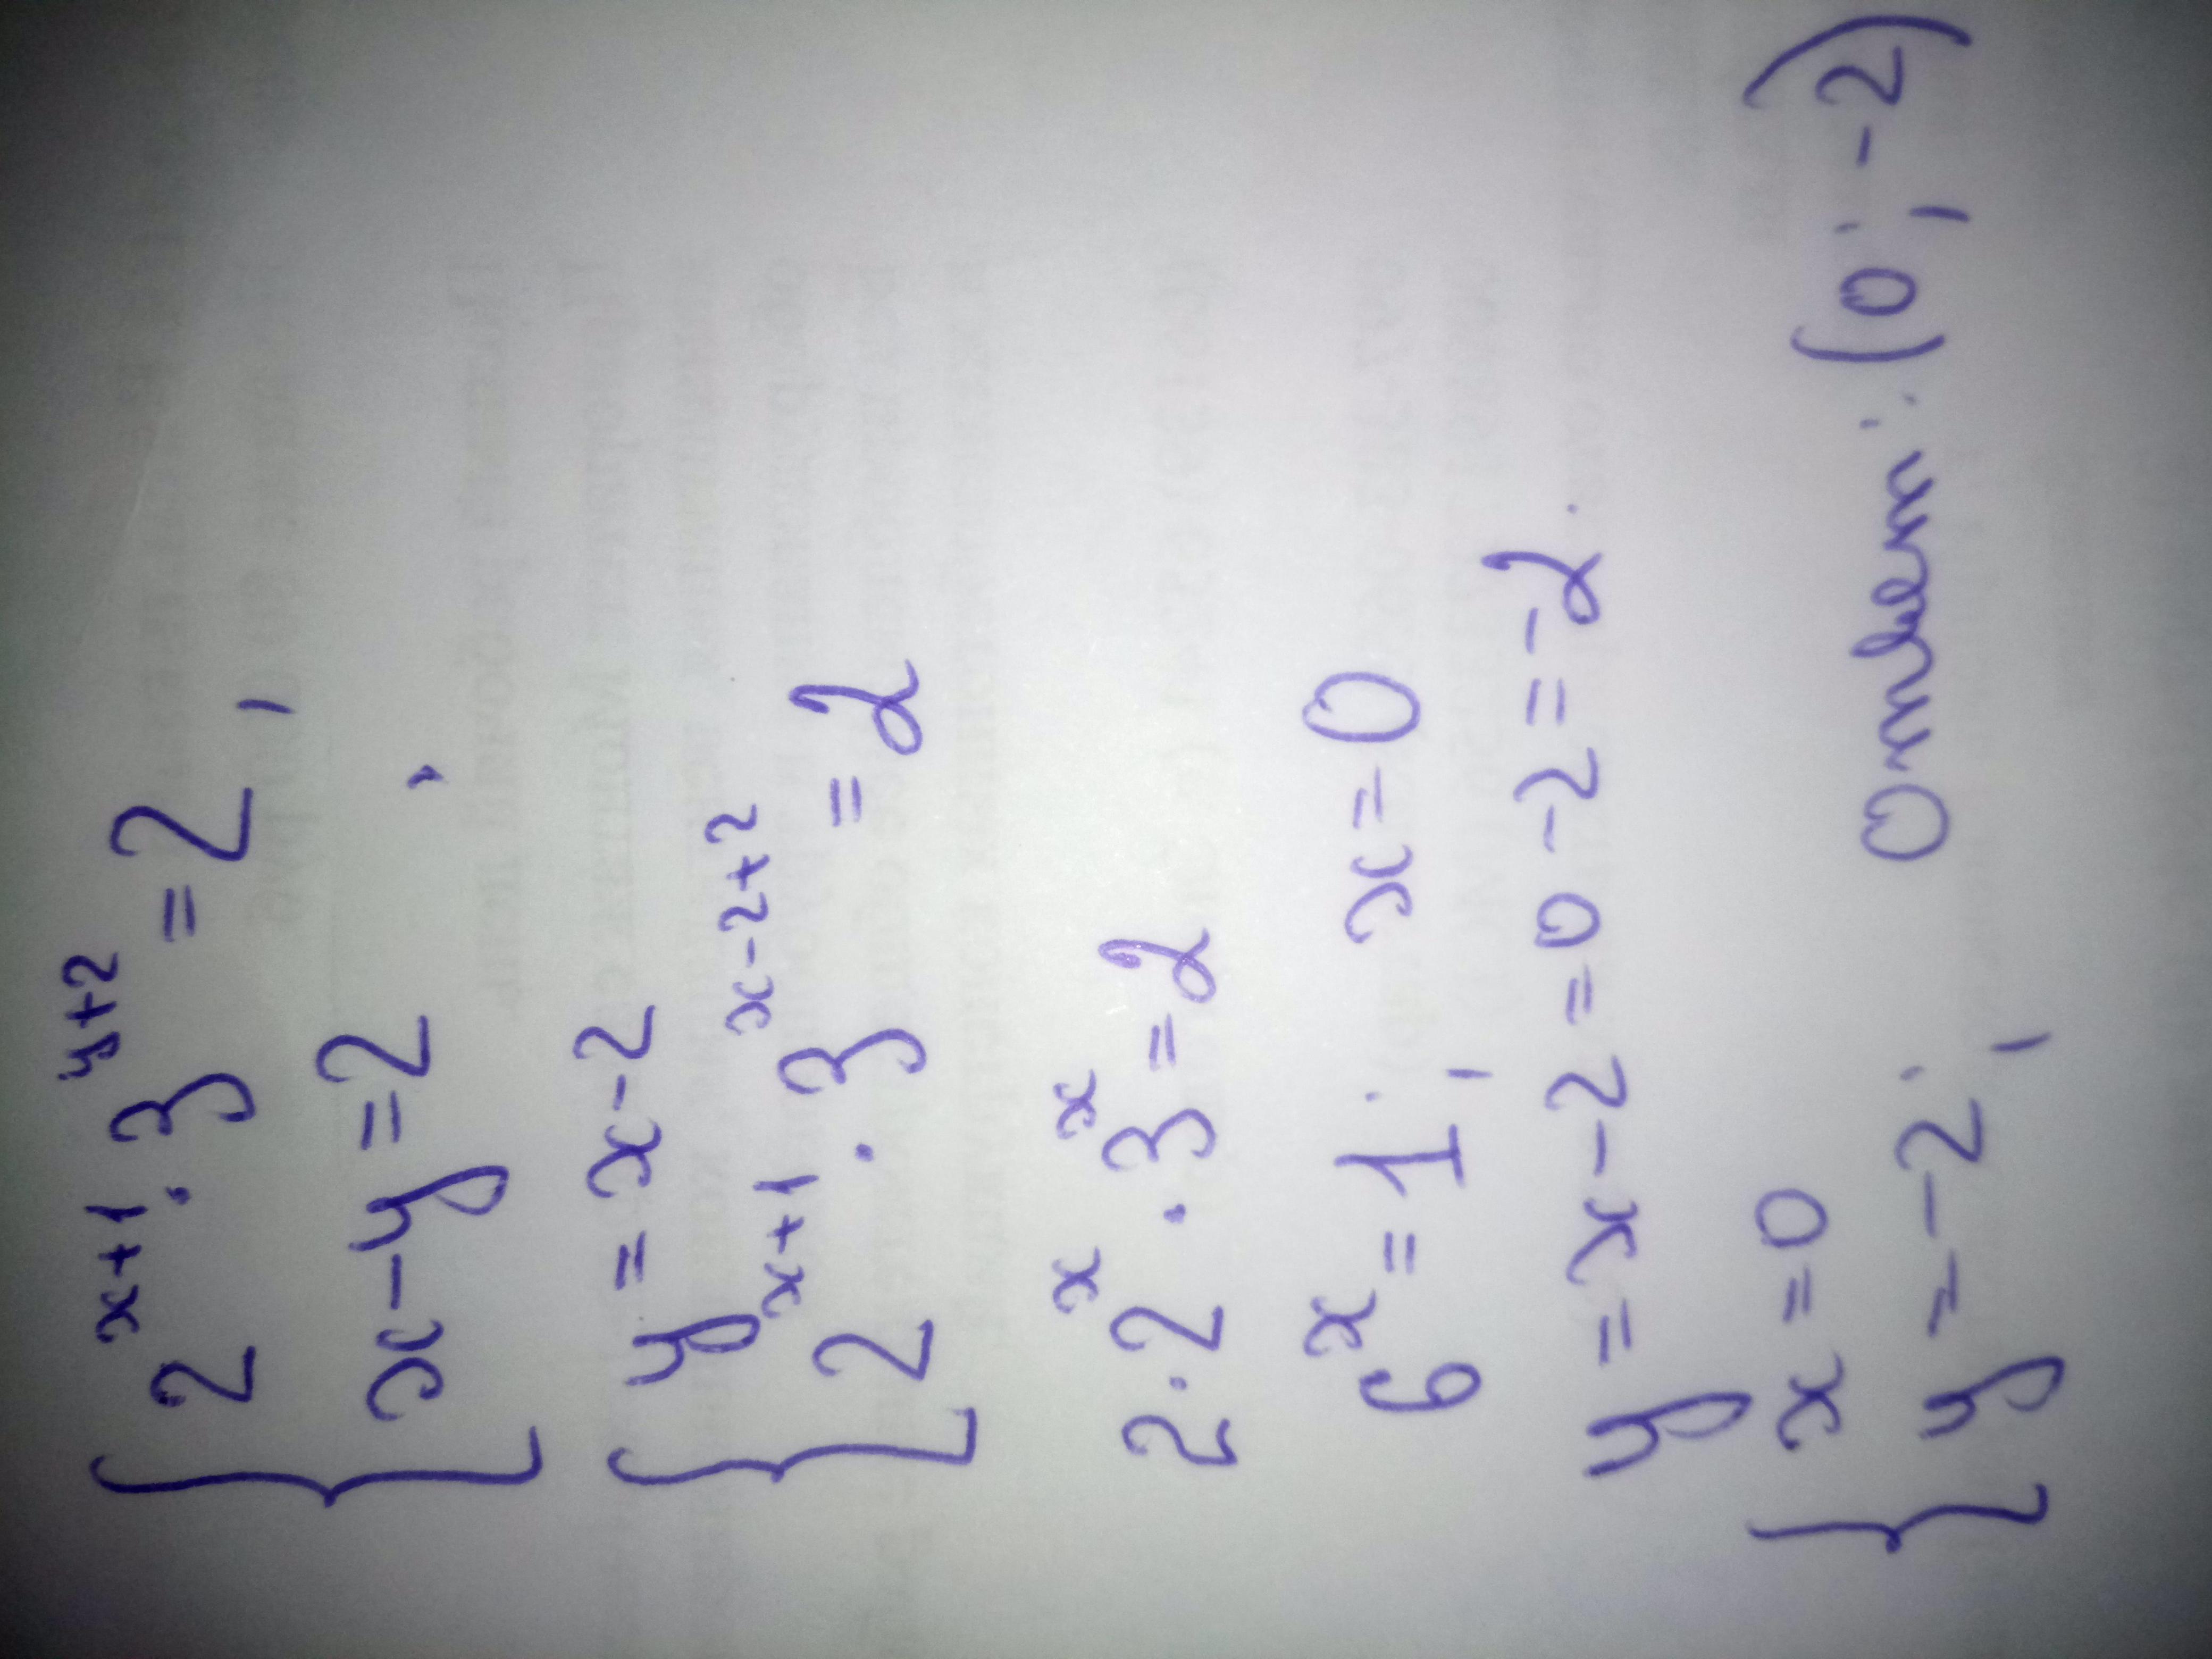 { 2^{x+1} · 3^{y+2} = 2,
x - y = 2 ,
{ y = x - 2
2^{x+1} · 3^{x-2+2} = 2
2 · 2^x · 3^x = 2
6^x = 1; x = 0
y = x - 2 = 0 - 2 = -2.
{ x = 0
y = -2; Ответ: (0; -2)